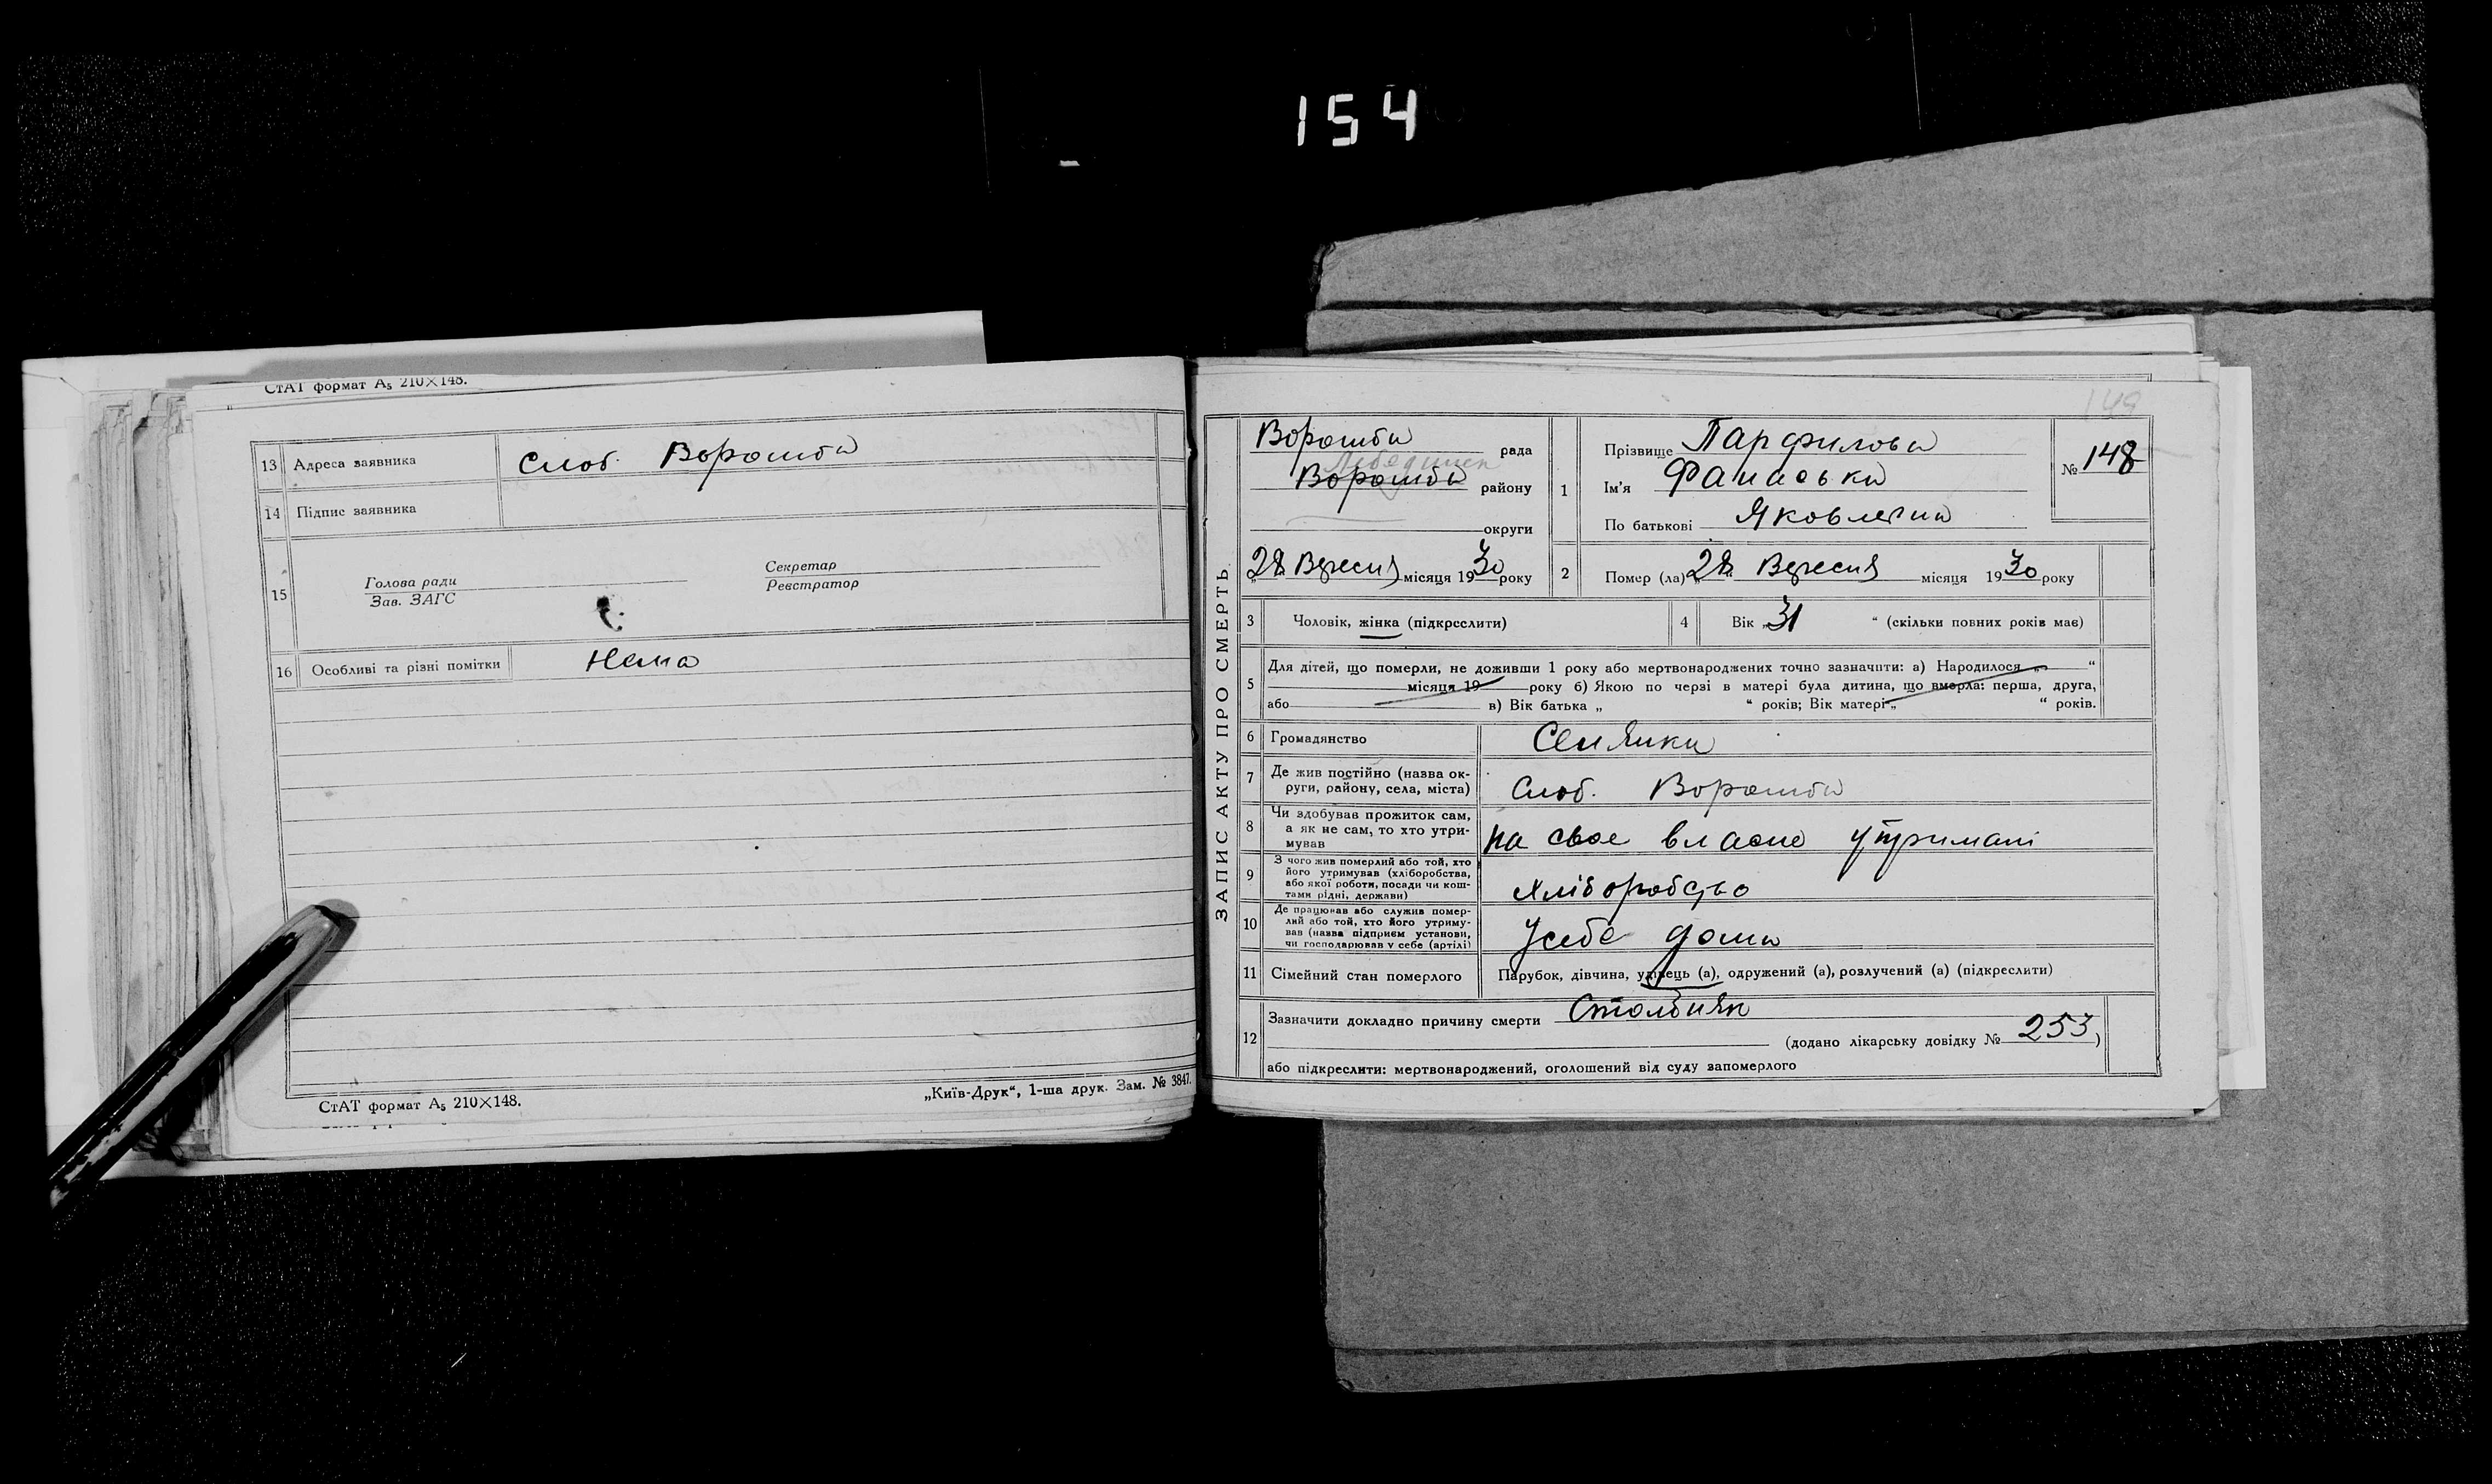 154
СтАТ формат А5 210×148.
13 Адреса заявника Слоб. Ворожба
14 Підпис заявника
15 Голова ради
Зав. ЗАГС
Секретар
Реєстратор
16 Особливі та різні помітки Нема
СтАТ формат А5 210×148.
„Київ-Друк“, 1-ша друк. Зам. № 3847.
149
ЗАПИС АКТУ ПРО СМЕРТЬ
Ворожба рада
Лебединск
Ворожба району
округи
„28 Вересня місяця 1930 року
1 Прізвище Парфилова
Ім'я Фанаська
По батькові Яковлевна
№ 148
2 Помер (ла) „28“ Вересня місяця 1930 року
3 Чоловік, жінка (підкреслити)
4 Вік „31“ (скільки повних років має)
5 Для дітей, що померли, не доживши 1 року або мертвонароджених точно зазначити: а) Народилося „ “
місяця 19 року б) Якою по черзі в матері була дитина, що вмерла: перша, друга,
або в) Вік батька „ “ років; Вік матері „ “ років.
6 Громадянство Селянка
7 Де жив постійно (назва ок-
руги, району, села, міста) Слоб. Ворожба
8 Чи здобував прожиток сам,
а як не сам, то хто утри-
мував на своє власне утримані
9 З чого жив померлий або той, хто
його утримував (хліборобства,
або якої роботи, посади чи кош-
тами рідні, держави) Хліборобство
10 Де працював або служив помер-
лий або той, хто його утриму-
вав (назва підприєм установи,
чи господарював у себе (артілі) Усебе дома
11 Сімейний стан померлого Парубок, дівчина, удівець (а), одружений (а), розлучений (а) (підкреслити)
12 Зазначити докладно причину смерти Столбняк
(додано лікарську довідку № 253)
або підкреслити: мертвонароджений, оголошений від суду запомерлого